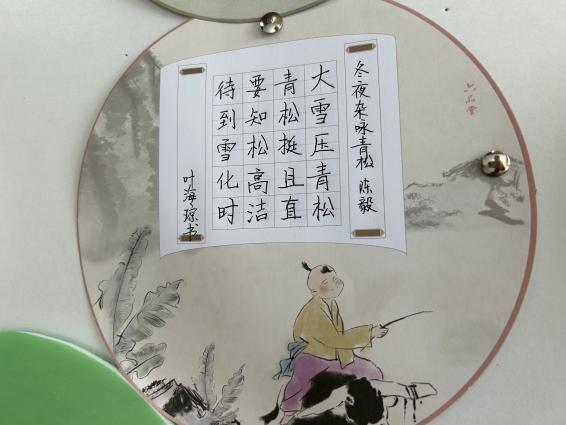 冬夜杂咏青松 陈毅
大雪压青松
青松挺且直
要知松高洁
待到雪化时
叶海琼书
六品堂